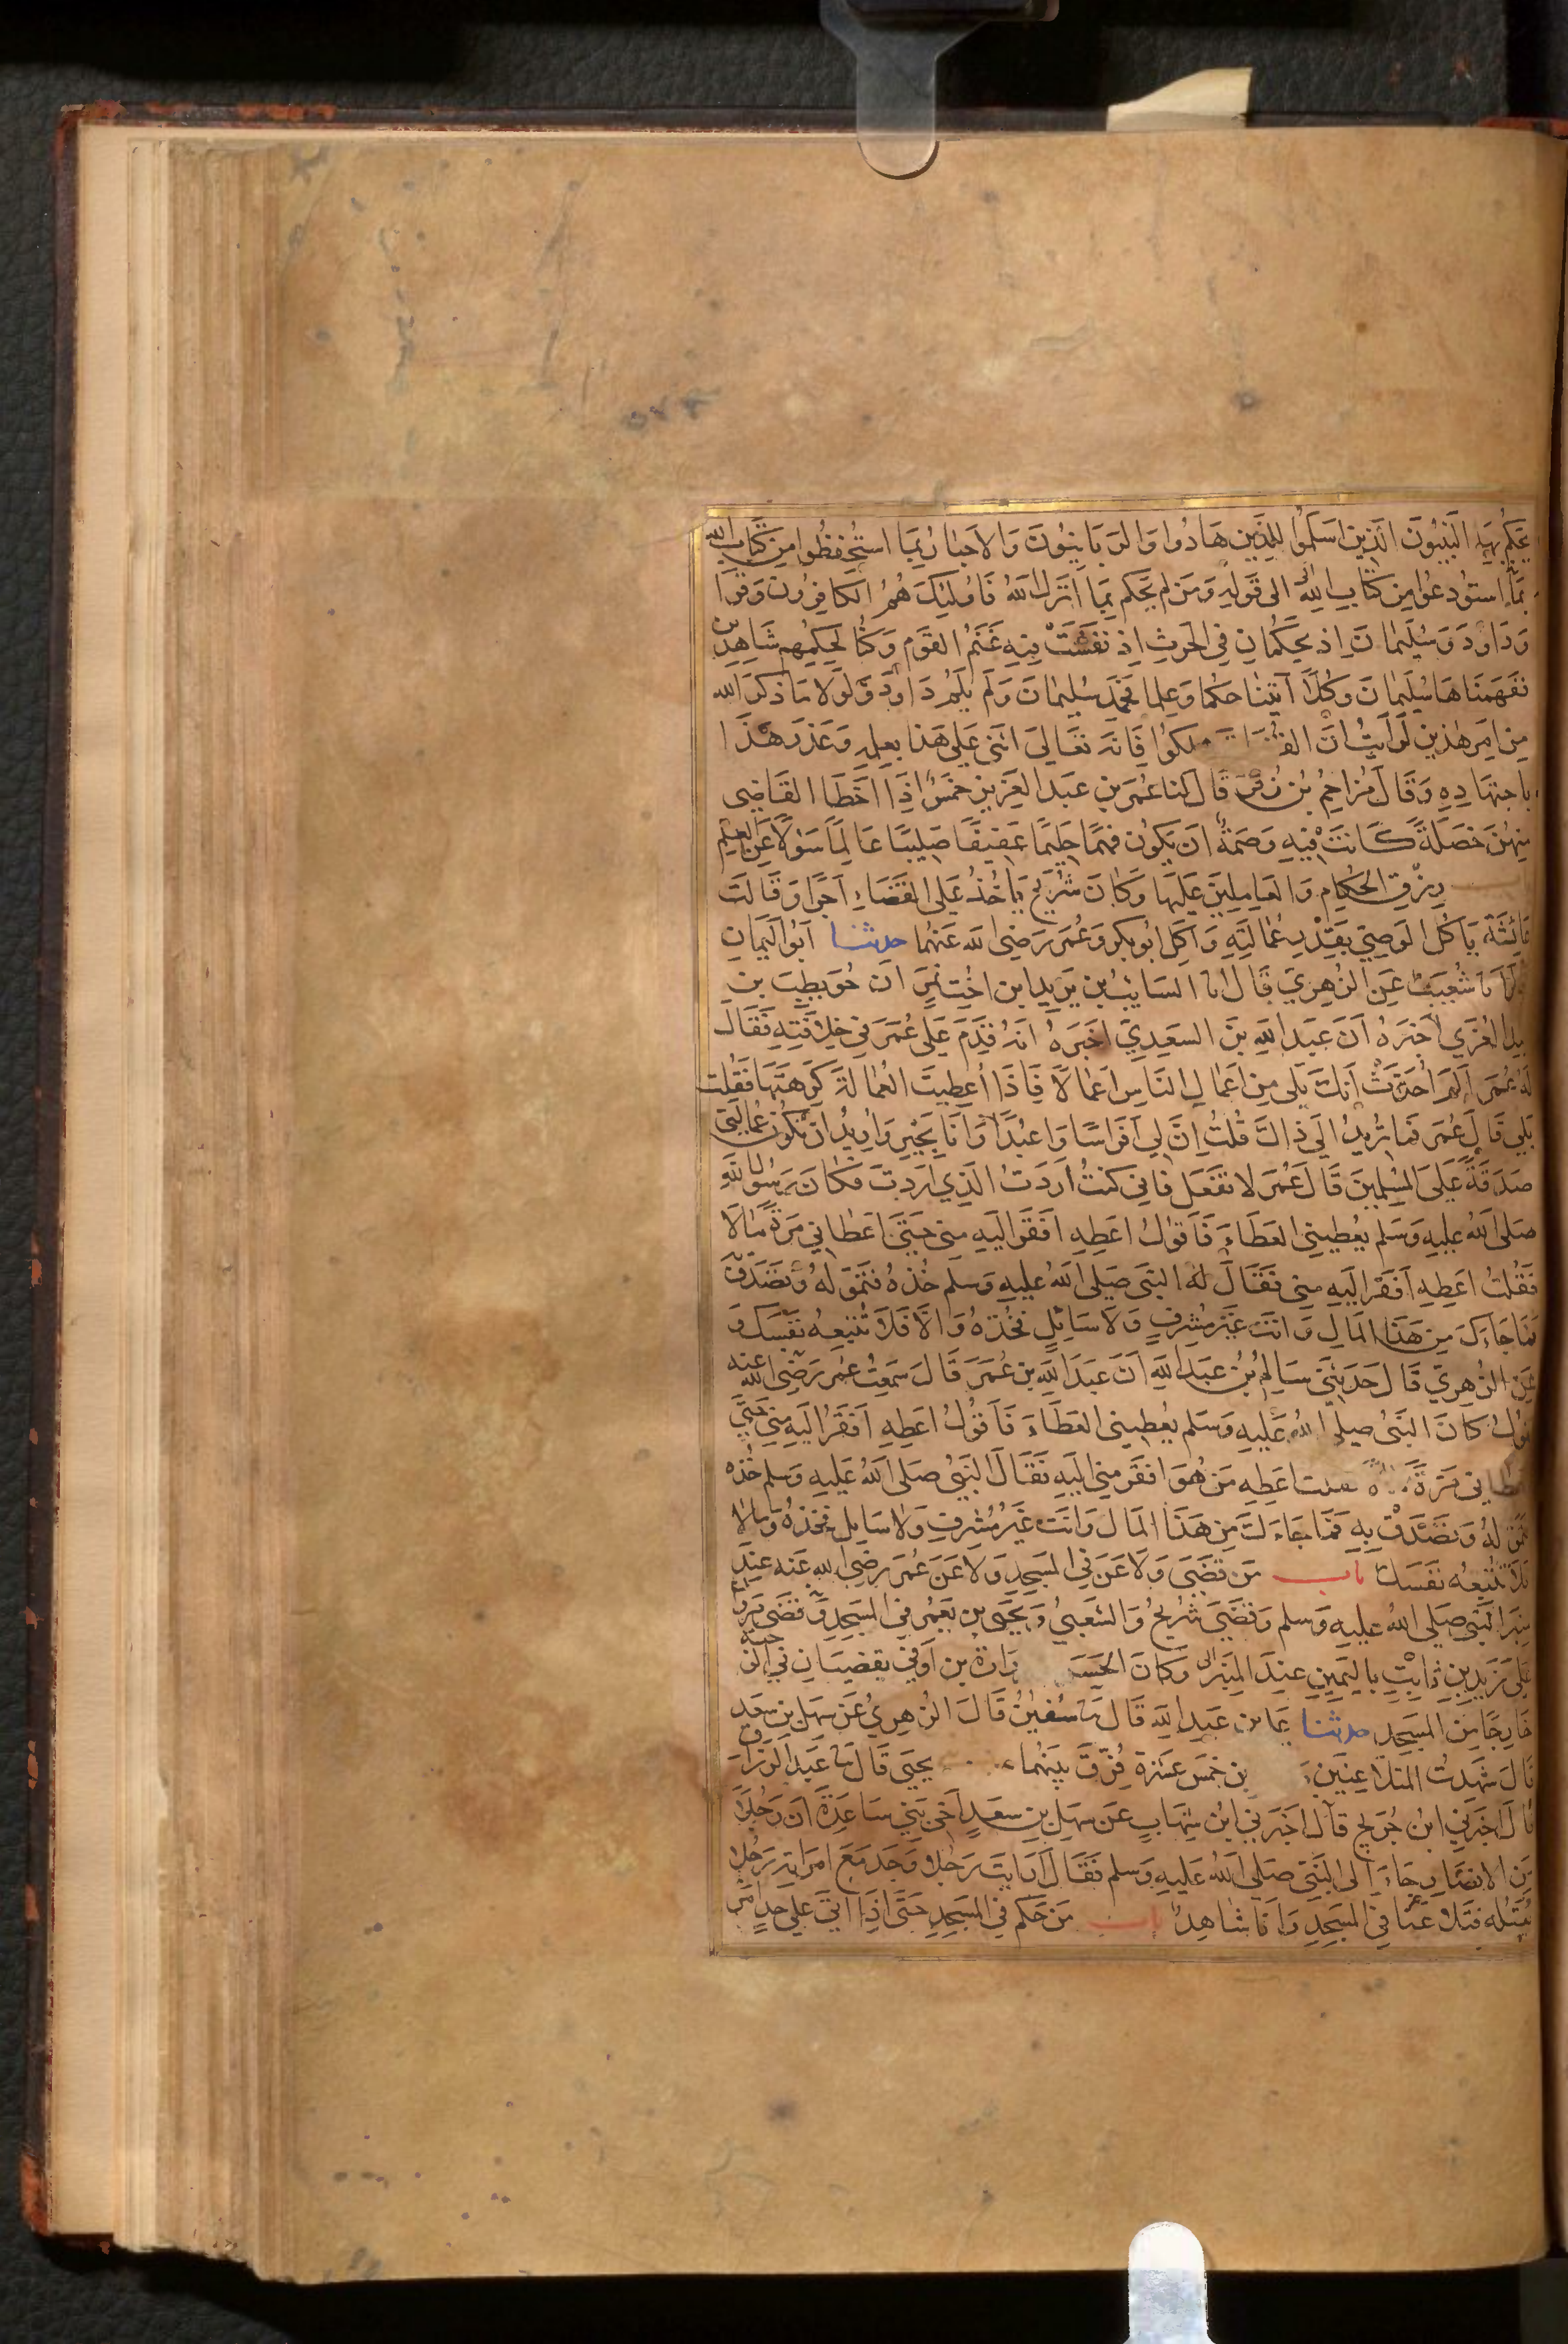 يحكم بها النبيون الذين اسلموا للذين هادوا والربانيون والاحبار بما استحفظوا من كتاب الله
بما استودعوا من كتاب الله الى قوله ومن لم يحكم بما انزل الله فاولئك هم الكافرون وقرا
وداود وسليمان اذ يحكمان في الحرث اذ نفشت فيه غنم القوم وكنا لحكمهم شاهدين
ففهمناها سليمان وكلا آتينا حكما وعلما فحمد سليمان ولم يلم داود ولولا ما ذكر الله
من امر هذين لرايت ان هلكوا فانه تعالى اثنى على هذا بعلمه وعذر هذا
باجتهاده وقال مزاحم بن زفر قال لنا عمر بن عبد العزيز خمس اذا اخطا القاضي
منهن خصلة كانت فيه وصمة ان يكون فهما حليما عفيفا صليبا عالما سؤلا عن العلم
رزق الحكام والعاملين عليها وكان شريح ياخذ على القضاء اجرا وقالت
عائشة ياكل الوصي بقدر عمالته واكل ابو بكر وعمر رضي الله عنهما حدثنا ابو اليمان
انا شعيب عن الزهري قال انا السايب بن يزيد ابن اخت نمر ان حويطب بن
عبد العزي اخبره ان عبد الله بن السعدي اخبره انه قدم على عمر في خلافته فقال
له عمر الم احدث انك تلى من اعمال الناس اعمالا فاذا اعطيت العمالة كرهتها فقلت
بلى قال عمر فما تريد الى ذلك قلت ان لي افراسا واعبدا وانا بخير واريد ان تكون عمالتي
صدقة على المسلمين قال عمر لا تفعل فاني كنت اردت الذي اردت فكان رسول الله
صلى الله عليه وسلم يعطيني العطاء فاقول اعطه افقر اليه مني حتى اعطاني مرة مالا
فقلت اعطه افقر اليه مني فقال له النبي صلى الله عليه وسلم خذه فتموله وتصدق
فما جاءك من هذا المال وانت غير مشرف ولا سائل فخذه والا فلا تتبعه نفسك و
عن الزهري قال حدثني سالم بن عبد الله ان عبد الله بن عمر قال سمعت عمر رضي الله عنه
يقول كان النبي صلى الله عليه وسلم يعطيني العطاء فاقول اعطه افقر اليه مني حتى
اعطاني مرة اعطه من هو افقر مني اليه فقال النبي صلى الله عليه وسلم خذه
فتموله وتصدق به فما جاءك من هذا المال وانت غير مشرف ولا سايل فخذه ومالا
فلا تتبعه نفسك باب من قضى ولاعن في المسجد ولاعن عمر رضي الله عنه عند
منبر النبي صلى الله عليه وسلم وقضى شريح والشعبي ويحيى بن يعمر في المسجد وقضى مروان
على زيد بن ثابت باليمين عند المنبر وكان الحسن زرارة بن اوفى يقضيان في الرحبة
خارجا من المسجد حدثنا بن عبد الله قال ثنا سفين قال الزهري عن سهل بن سعد
قال شهدت المتلاعنين بن خمس عشرة فرق بينهما يحيى قال ثنا عبد الرزاق
قال اخبرني ابن جريج قال اخبرني ابن شهاب عن سهل بن سعد اخي بني ساعدة ان رجلا
من الانصار جاء الى النبي صلى الله عليه وسلم فقال ارايت رجلا وجد مع امراته رجلا
ايقتله فتلاعنا في المسجد وانا شاهد باب من حكم في المسجد حتى اذا اتى على حد امر